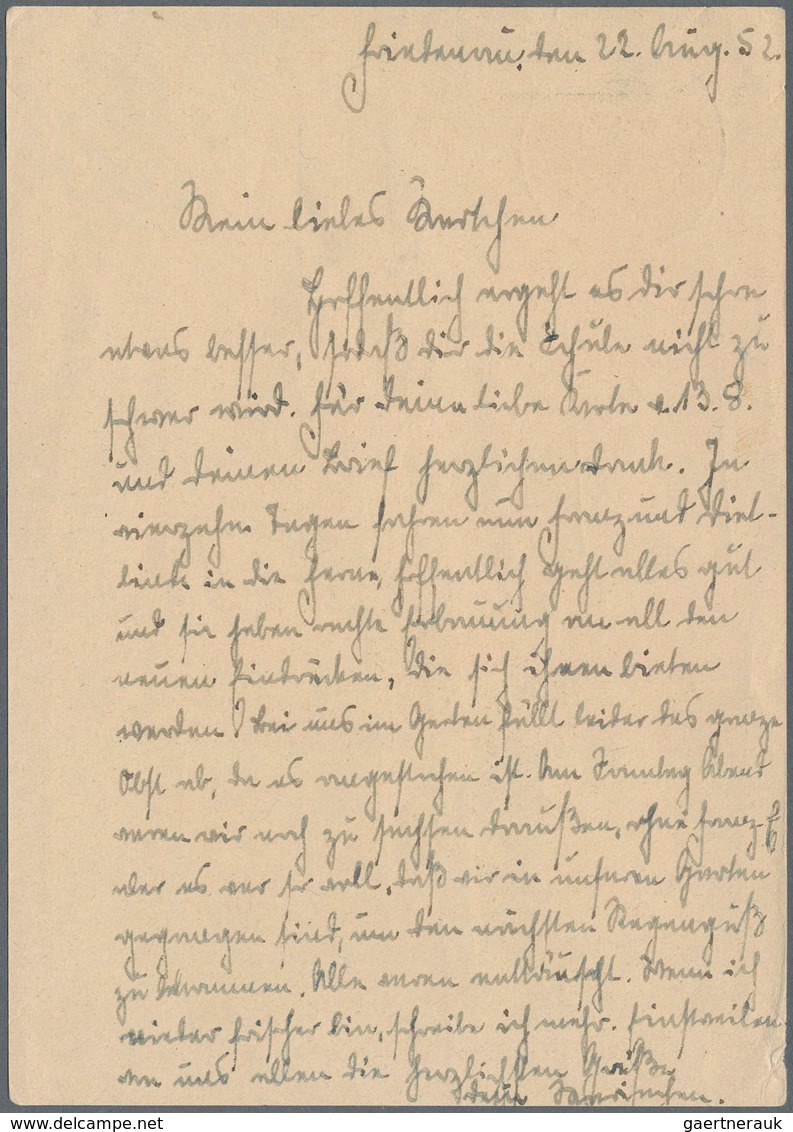 Friedenau, den 22. Aug. 52.
Mein liebes
Hoffentlich ergeht es dir schon
etwas besser, sodaß dir die Schule nicht zu
schwer wird. Für deine liebe Karte v. 13. 8.
und deinen Brief herzlichen Dank. In
vierzehn Tagen fahren nun Franz und Diet-
linde in die Ferne, hoffentlich geht alles gut
und sie haben rechte Erbauung an all den
neuen Eindrücken, die sich ihnen bieten
werden! Bei uns im Garten fällt leider das ganze
Obst ab, da es angestochen ist. Am Sonntag Abend
waren wir noch zu sechsen draußen, ohne Franz.
Aber es war so voll, daß wir in unseren Garten
gegangen sind, um den nächsten Regenguß
zu Alle waren enttäuscht. Wenn ich
wieder frischer bin, schreibe ich mehr. Einstweilen
an uns allen die herzlichsten Grüße
dein
gaertnerauk